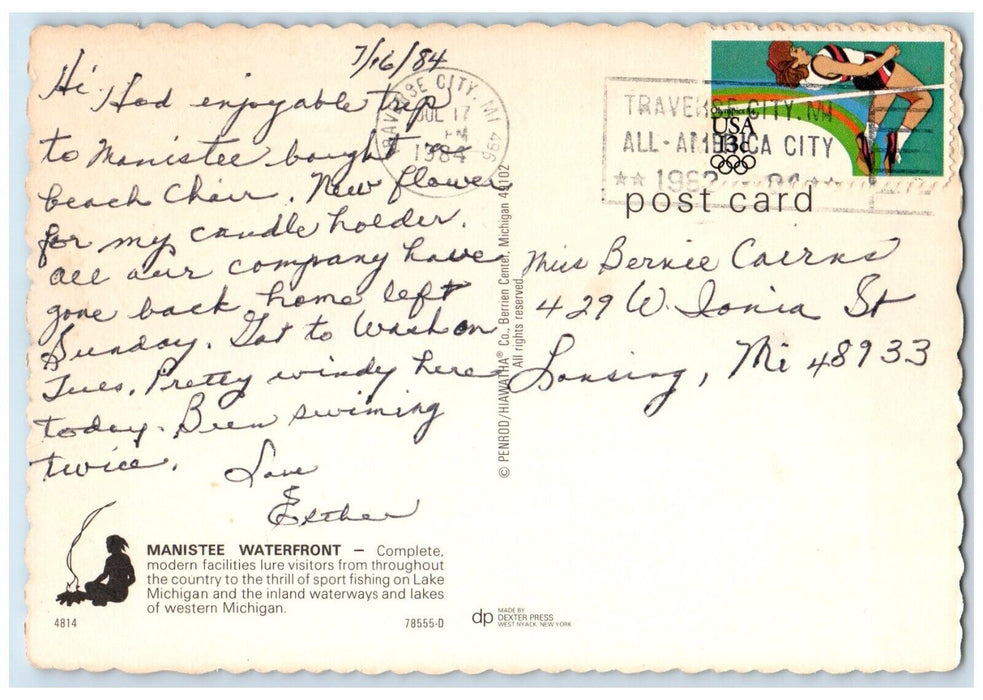 7/16/84
Hi, Had enjoyable trip
to Manistee bought
beach Chair. New flower
for my candle holder.
All our company have
gone back home left
Sunday. Got to Wash on
Tues. Pretty windy here
today. Been swiming
twice.
Love
Esther
MANISTEE WATERFRONT — Complete,
modern facilities lure visitors from throughout
the country to the thrill of sport fishing on Lake
Michigan and the inland waterways and lakes
of western Michigan.
4814
78555-D
dp MADE BY
DEXTER PRESS
WEST NYACK, NEW YORK
© PENROD/HIAWATHA® Co., Berrien Center, Michigan 49102
All rights reserved
TRAVERSE CITY, MI 496
JUL 17
PM
1984
TRAVERSE CITY, MI
ALL-AMERICA CITY
USA
13c
post card
Miss Bernie Cairns
429 W. Ionia St
Lansing, Mi 48933